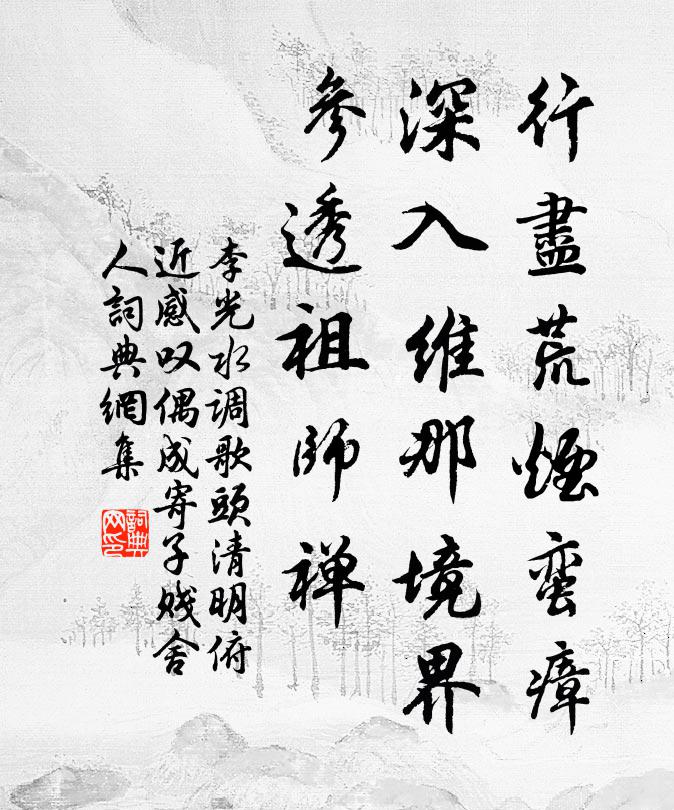 行盡荒煙蛮瘴
深入維那境界
參透祖師禅
李光水调歌頭清明俯
近感叹偶成寄子賤舍
人詞典網集
詞典
网印